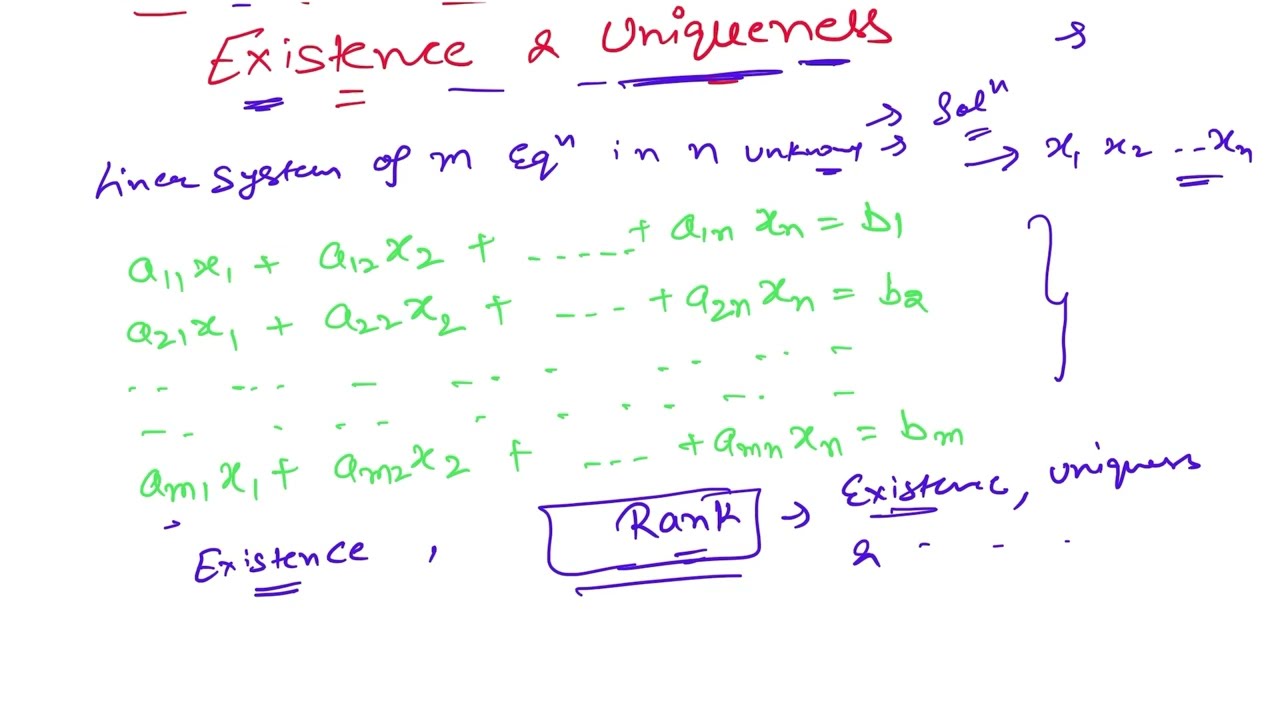 Existence & Uniqueness →
Linear System of m Eqⁿ in n unknowns → → Solⁿ → x₁ x₂ ... xₙ
a₁₁x₁ + a₁₂x₂ + ...... + a₁ₙ xₙ = b₁
a₂₁x₁ + a₂₂x₂ + ---- + a₂ₙ xₙ = b₂
aₘ₁x₁ + aₘ₂x₂ + ---- + aₘₙ xₙ = bₘ
Existence , Rank → Existence, uniqness
& - - -